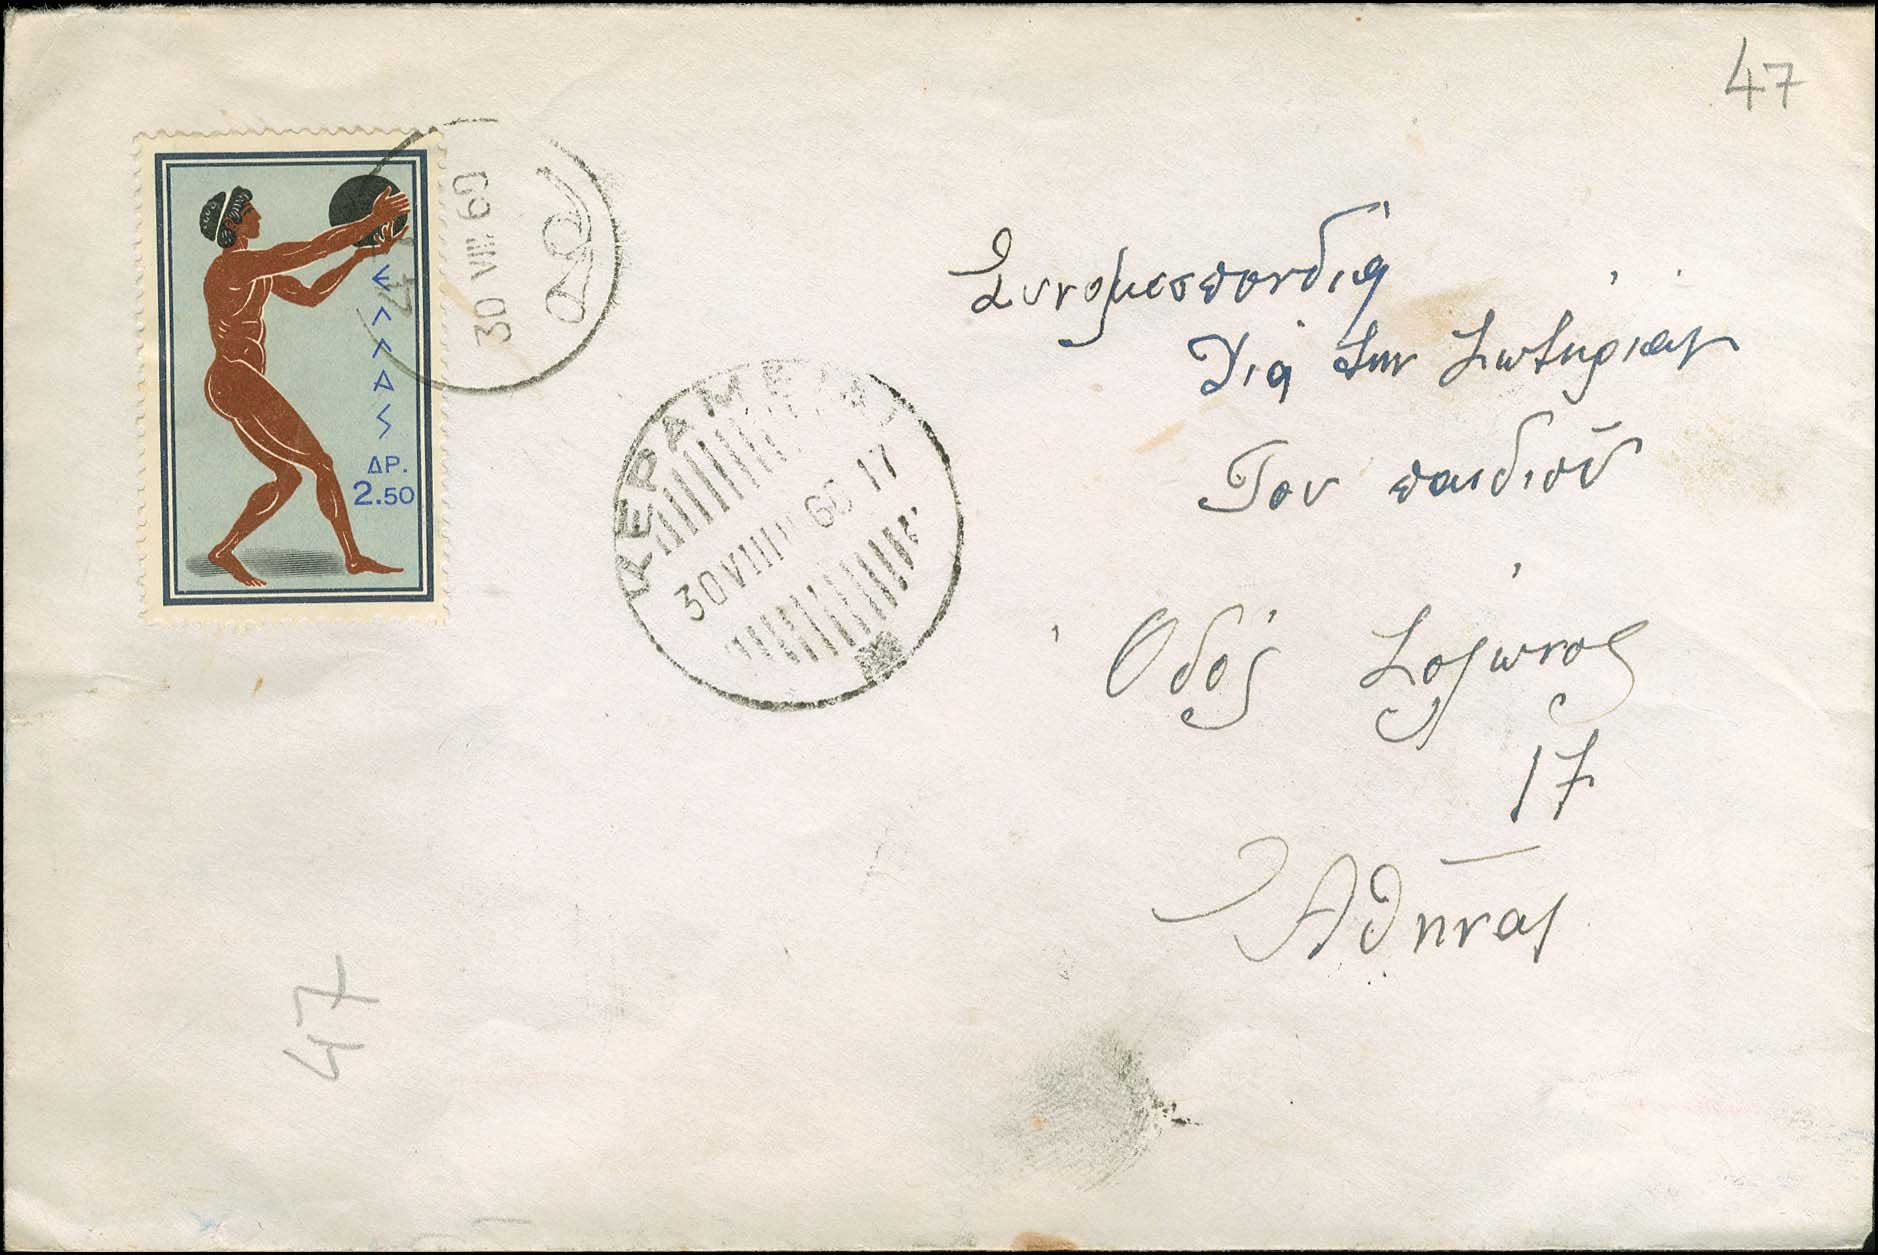 47
ΕΛΛΑΣ
ΔΡ.
2.50
30 VIII 60
ΚΕΡΑΜΕ
30 VIII 60 17
Συνομοσπονδία
Για την Σωτηρίαν
Του παιδιού
Οδός Σολωνος
17
Αθηνας
47